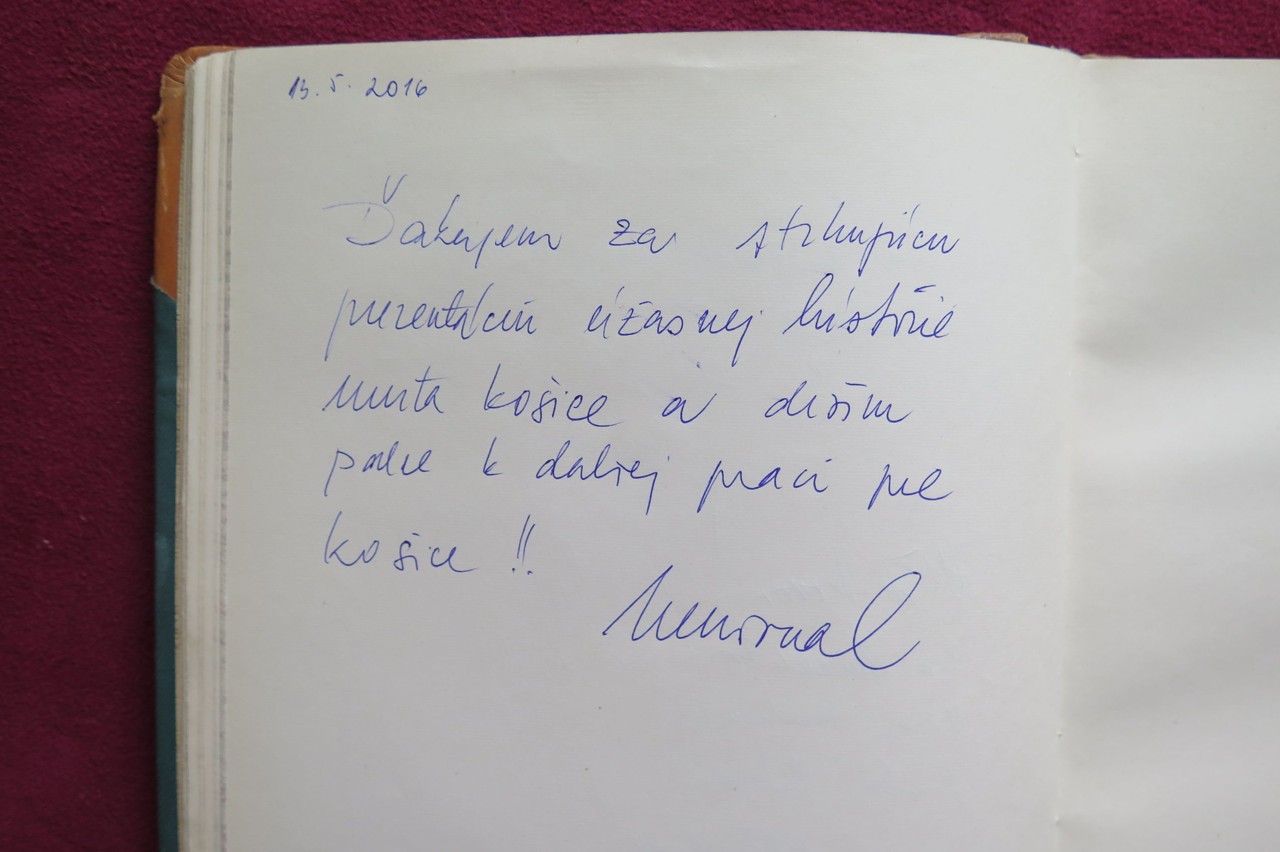 13. 5. 2016
Ďakujem za strhujúcu
prezentáciu úžasnej histórie
mesta Košice a držím
palce k dalšej práci pre
Košice !!